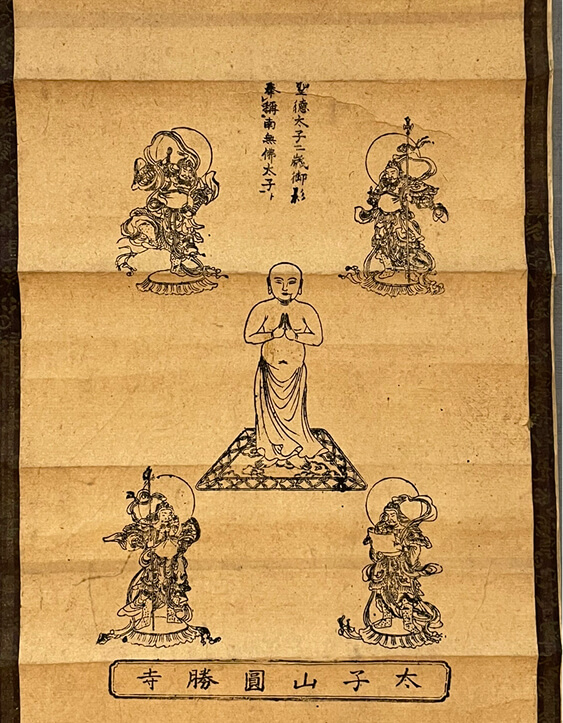 聖德太子二歲御影
奉稱南無佛太子ト
太子山圓勝寺